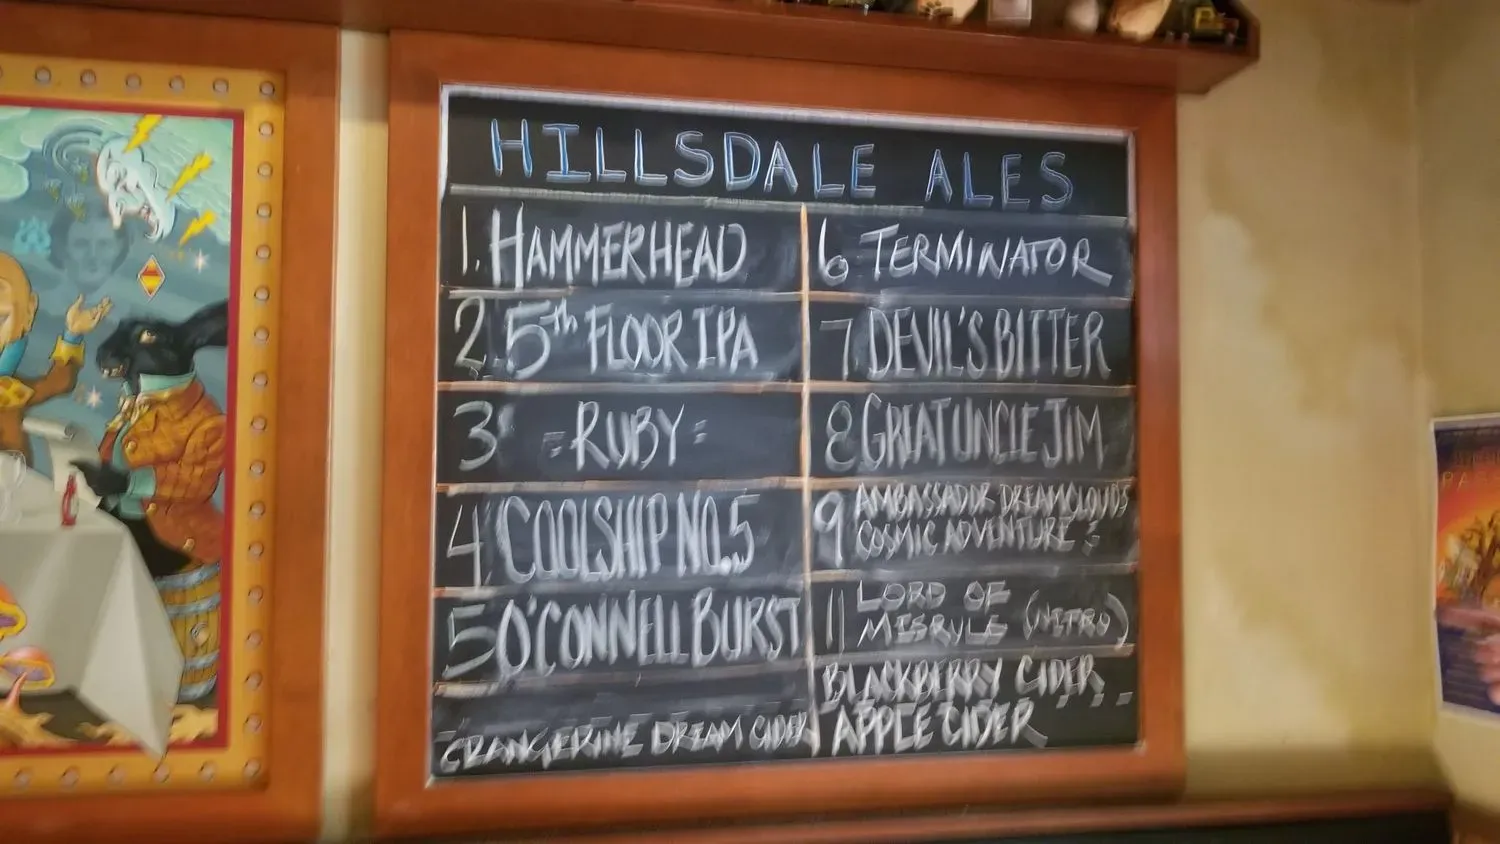 HILLSDALE ALES
1. HAMMERHEAD
2. 5th FLOOR IPA
3 RUBY
4. COOLSHIP NO. 5
5 O'CONNELL BURST
CRANGERINE DREAM CIDER
6 TERMINATOR
7 DEVIL'S BITTER
8 GREAT UNCLE JIM
9 AMBASSADOR DREAMCLOUD'S
COSMIC ADVENTURE
11 LORD OF
MISRULE (NITRO)
BLACKBERRY CIDER
APPLE CIDER